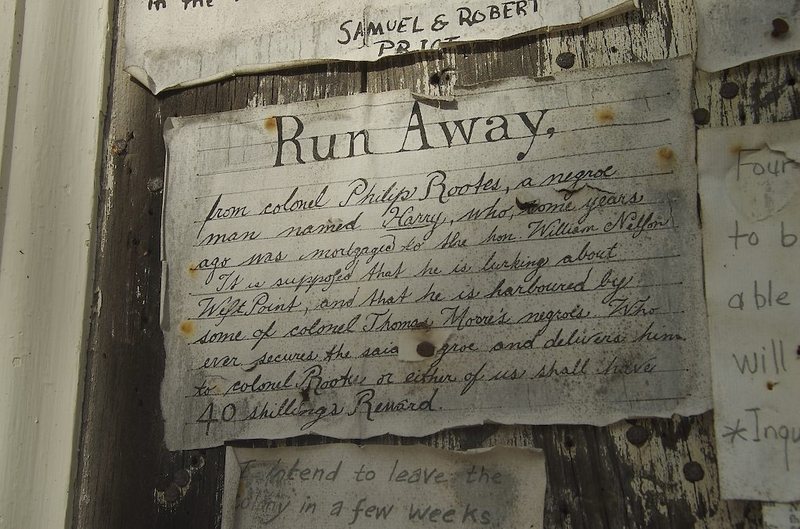 in the
SAMUEL & ROBERT
PRICE
Run Away,
from colonel Philip Rootes, a negroe
man named Harry, who, some years
ago was mortgaged to the hon. William Nelson
It is supposed that he is lurking about
West Point, and that he is harboured by
some of colonel Thomas Moore's negroes. Who
ever secures the said groe and delivers him
to colonel Rootes or either of us shall have
40 shillings Reward.
I Intend to leave the
in a few weeks
Four
to b
able
will
*Inqu